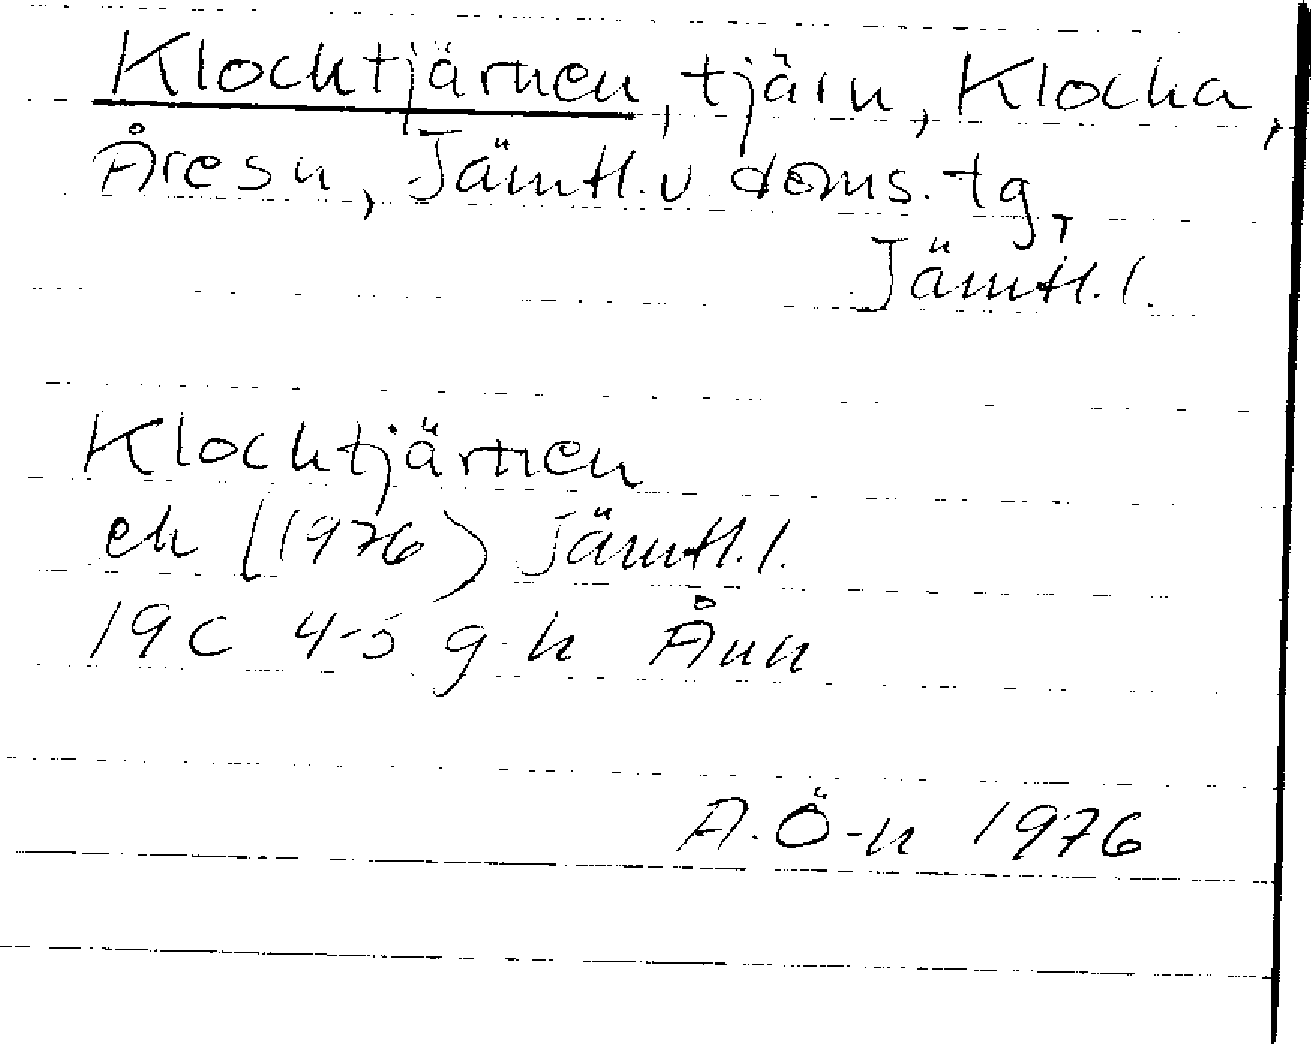 Klocktjärnen, tjärn, Klocka,
Åre sn, Jämtl.v. doms. tg,
Jämtl. l.
Klocktjärnen
ek (1976) Jämtl. l.
19C 4-5 g-h Ånn
A. Ö-n 1976